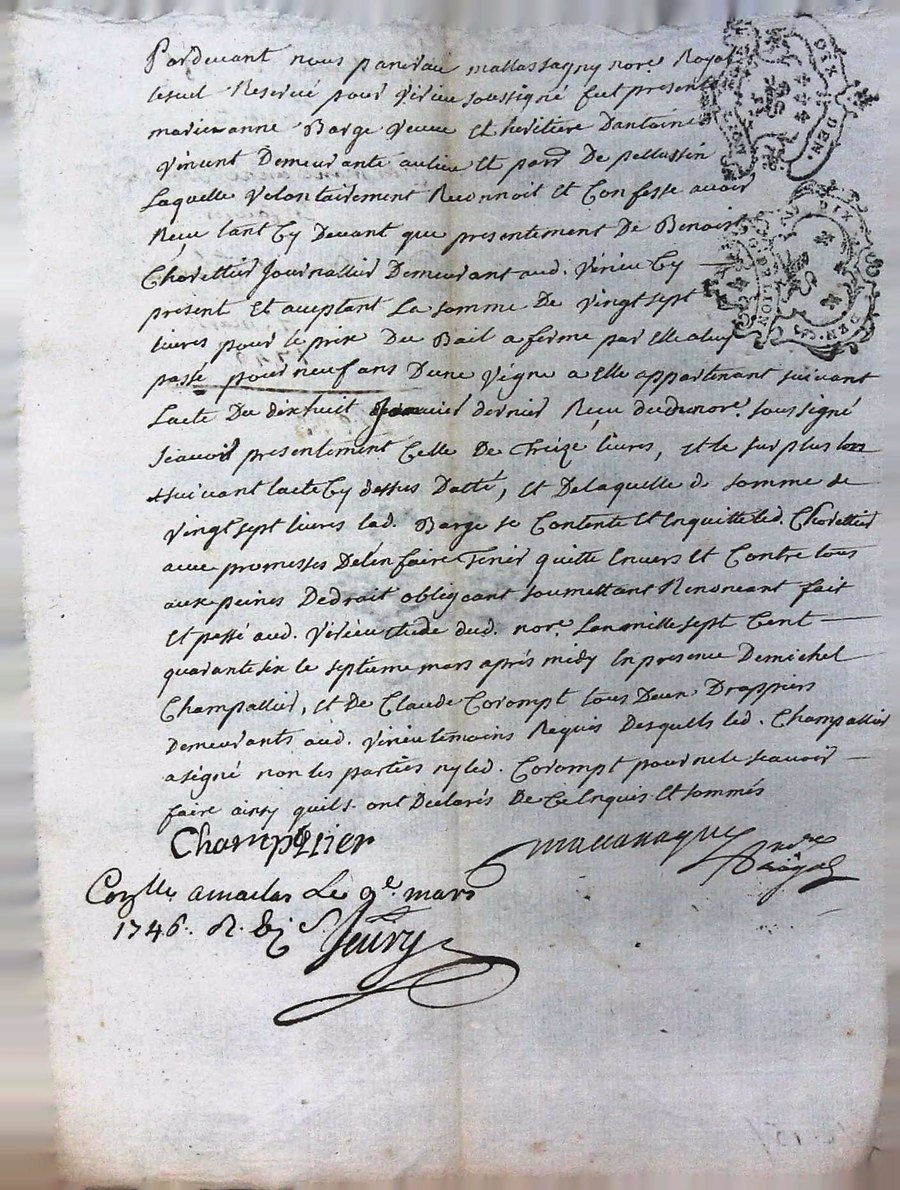 Pardevant nous pancrace mallassagny nore. Royal
Reservé pour virieu soussigné fut presente
marie anne Barge veuve Et heritiere Dantoine
vincent Demeurante au lieu Et parr. De pellussin
Laquelle volontairement Reconnoit Et Confesse avoir
Reçu tant Cy Devant que presentement De Benoist
Chorettier Journallier Demeurant aud. virieu Cy
present Et aceptant La somme De vingt sept
livres pour le prix Du Bail a ferme par Elle a luy
passé pour neuf ans Dune vigne a Elle appartenant suivant
Lacte Du dix huit Janvier dernier Reçu dud. nore. soussigné
scavoir presentement Celle De Treize livres, Et le surplus lors
suivant lacte Cy dessus Datté, Et De laquelle d. somme de
vingt sept livres lad. Barge se Contente Et En quitte led. Chorettier
avec promesses De len faire Tenir quitte Envers Et Contre tous
aux peines De droit obligeant soumettant Renonceant fait
Et passé aud. virieu Etude dud. nore. Lan mille sept Cent
quarante six le septieme mars après midy En presence De michel
Champallier, Et De Claude Corompt tous Deux Drappiers
Demeurants aud. virieu temoins Requis Desquells led. Champallier
a signé non les parties ny led. Corompt pour ne le scavoir
faire ainsy quils ont Declarés De Ce Enquis Et sommés
Champallier
nore
Royal
Conlle a maclas Le 9e. mars
1746. R.
DIX DEN.
LYON
DIX DEN.